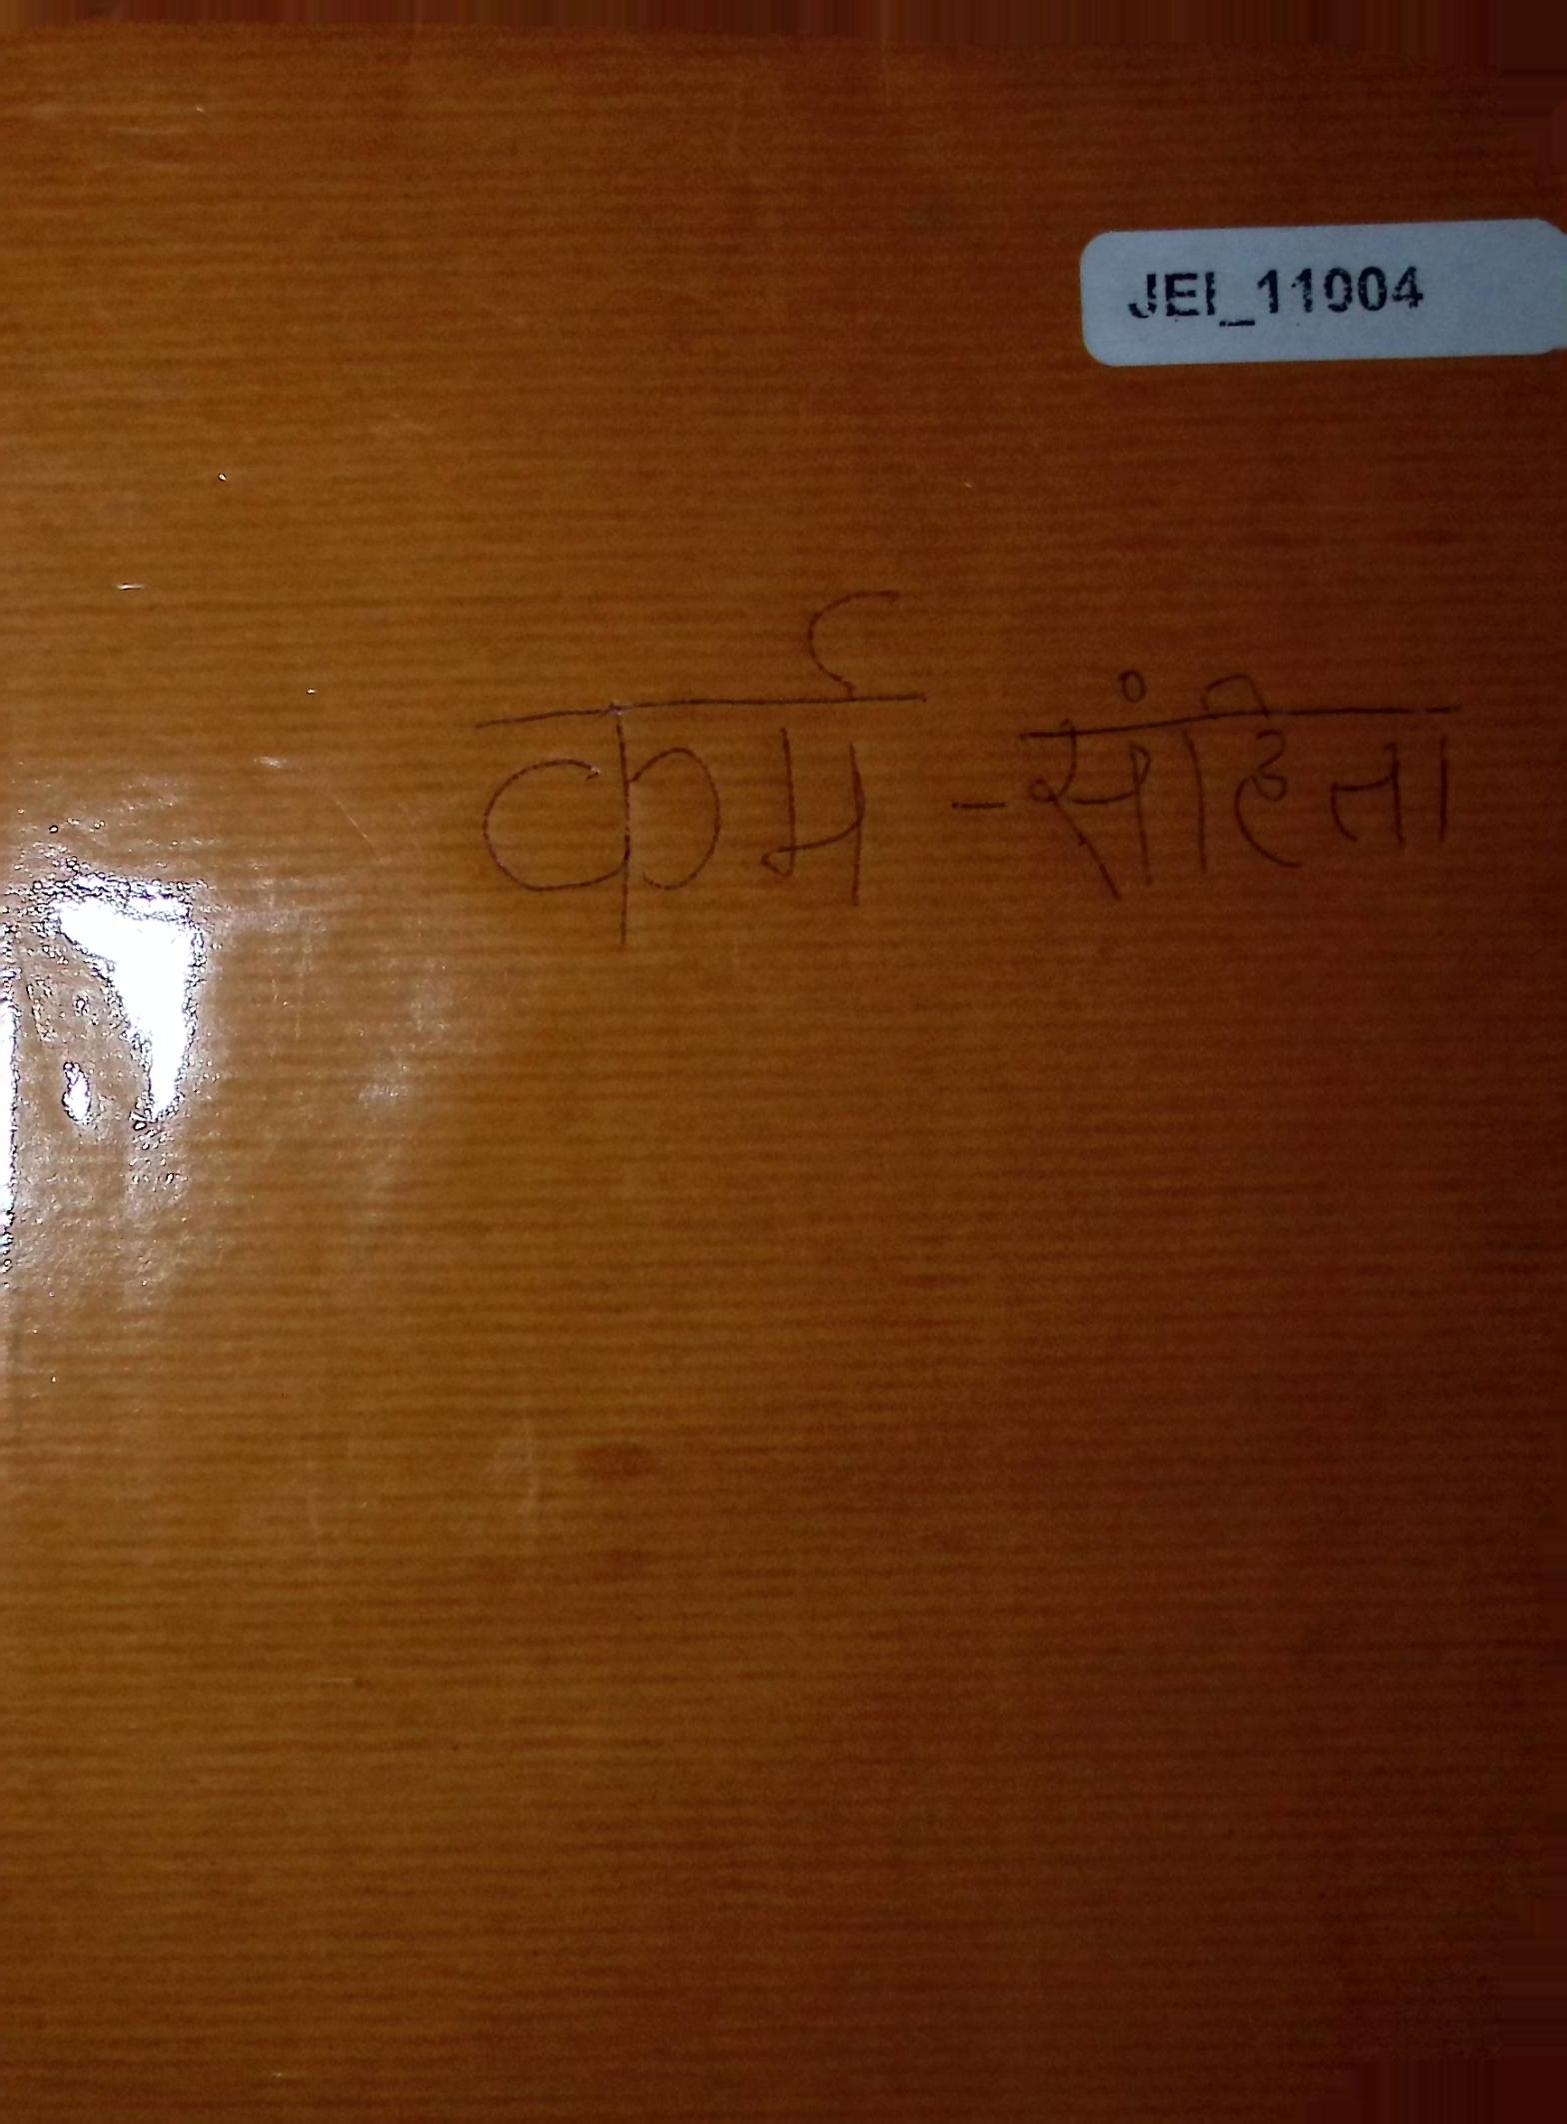 JEI_11004
कर्म - संहिता